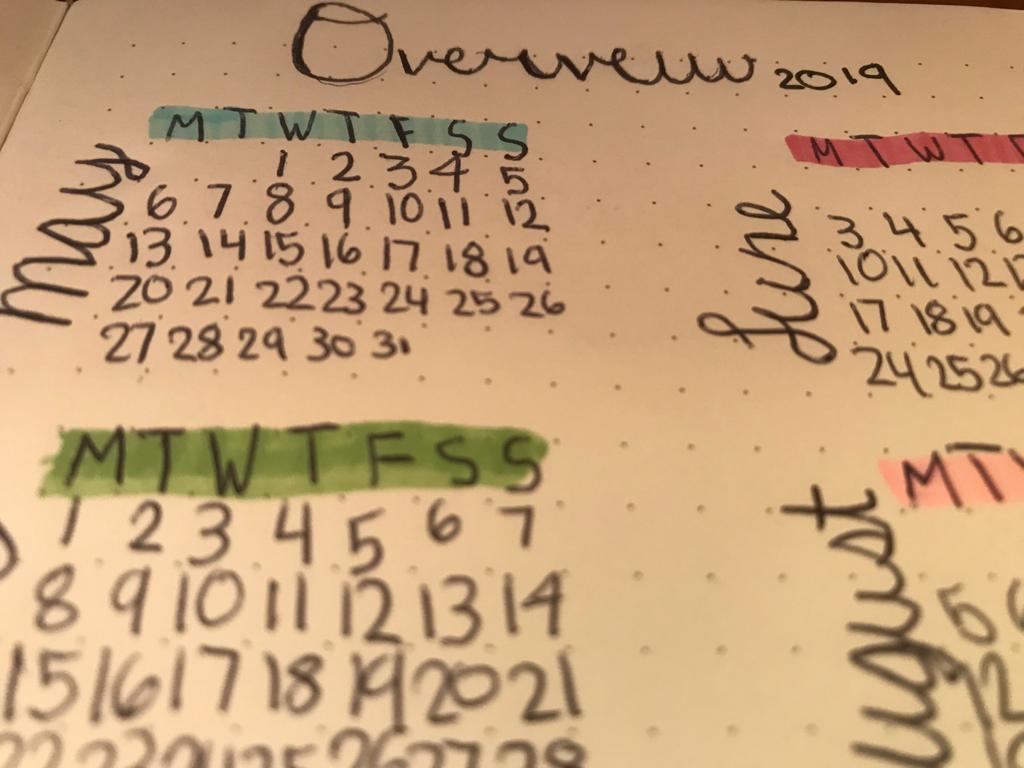 Overveiw 2019
May
M T W T F S S
1 2 3 4 5
6 7 8 9 10 11 12
13 14 15 16 17 18 19
20 21 22 23 24 25 26
27 28 29 30 31
June
M T W T
3 4 5 6
10 11 12
17 18 19
24 25 26
M T W T F S S
1 2 3 4 5 6 7
8 9 10 11 12 13 14
15 16 17 18 19 20 21
22 23 24 25 26 27 28
August
M T
5 6
12